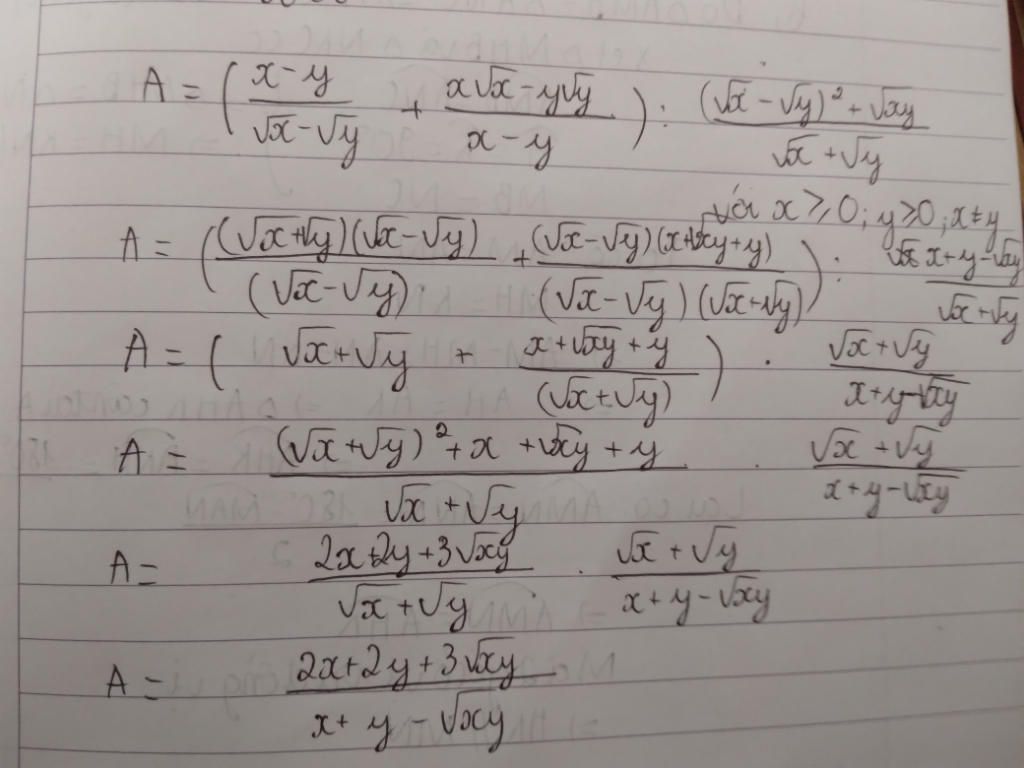 A = ( (x-y)/(√x-√y) + (x√x-y√y)/(x-y) ) : ((√x-√y)²+√xy)/(√x+√y)
với x ≥ 0; y ≥ 0; x ≠ y
A = ( ((√x+√y)(√x-√y))/((√x-√y)) + ((√x-√y)(x+√xy+y))/((√x-√y)(√x+√y)) ) : (x+y-√xy)/(√x+√y)
A = ( √x+√y + (x+√xy+y)/((√x+√y)) ) . (√x+√y)/(x+y-√xy)
A = ((√x+√y)²+x+√xy+y)/(√x+√y) . (√x+√y)/(x+y-√xy)
A = (2x+2y+3√xy)/(√x+√y) . (√x+√y)/(x+y-√xy)
A = (2x+2y+3√xy)/(x+y-√xy)